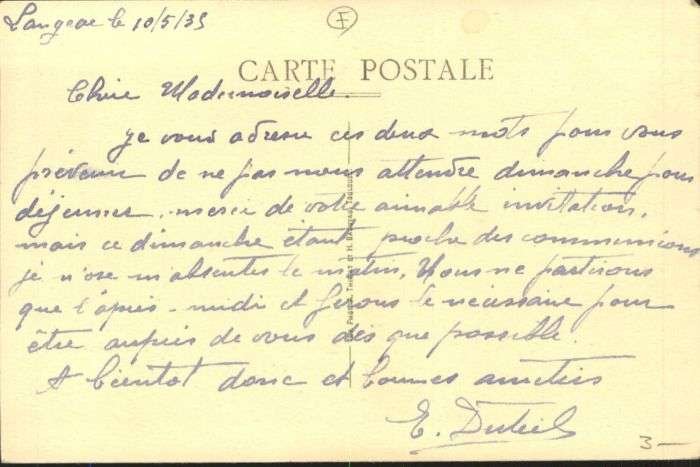 Langeac le 10/5/35
F
CARTE POSTALE
Chère Mademoiselle.
Je vous adresse ces deux mots pour vous
prévenir de ne pas nous attendre dimanche pour
déjeuner. merci de votre aimable invitation,
mais ce dimanche étant proche des communions
je n'ose m'absenter le matin. Nous ne partirons
que l'après-midi et ferons le nécessaire pour
être auprès de vous dès que possible.
A bientôt donc et bonnes amitiés
E.
3-